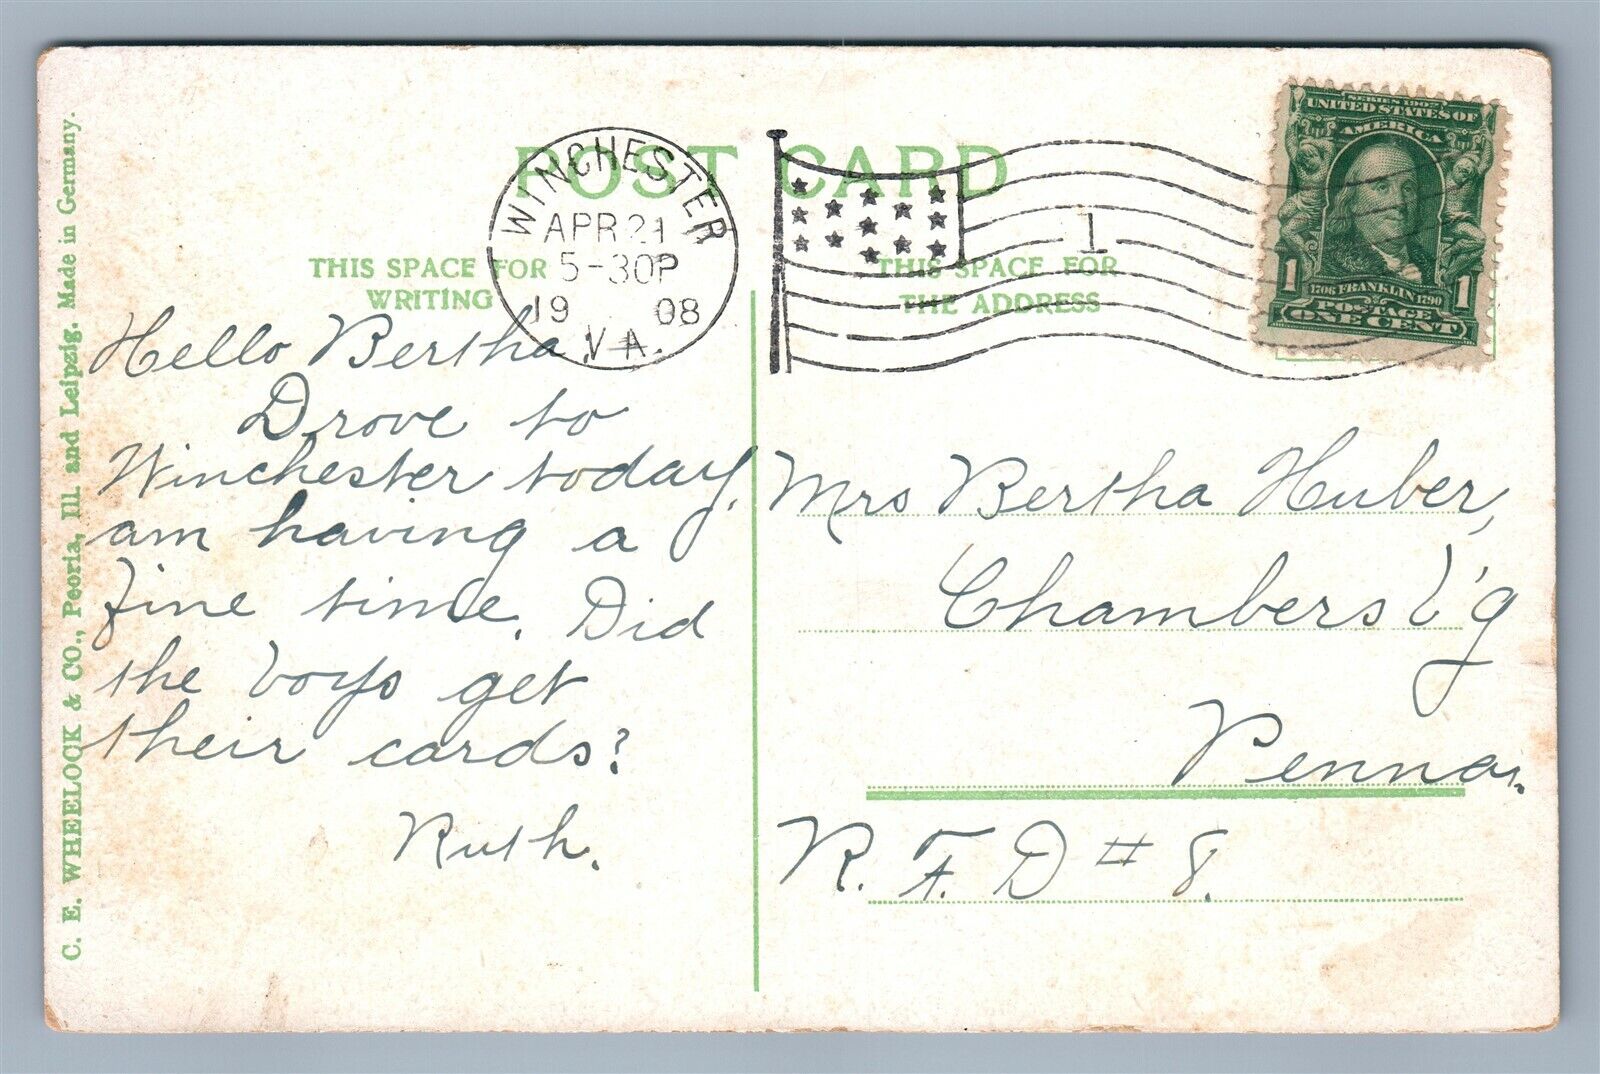 POST CARD
WINCHESTER
APR 21
5-30P
19 08
VA.
1
SERIES 1902
UNITED STATES OF
AMERICA
1706 FRANKLIN 1790
1 POSTAGE 1
ONE CENT
THIS SPACE FOR
WRITING
THIS SPACE FOR
THE ADDRESS
Hello Bertha,
Drove to
Winchester today,
am having a
fine time. Did
the boys get
their cards?
Ruth.
Mrs Bertha Huber,
Chambersb'g
Penna.
R. F. D # 8.
C. E. WHEELOCK & CO., Peoria, Ill. and Leipzig. Made in Germany.